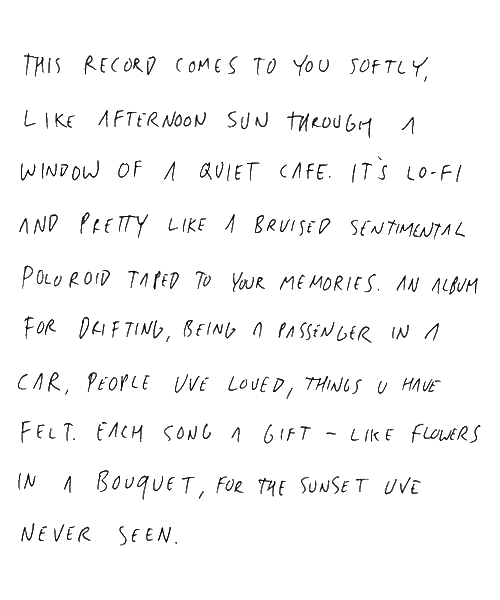 THIS RECORD COMES TO YOU SOFTLY,
LIKE AFTERNOON SUN THROUGH A
WINDOW OF A QUIET CAFE. IT'S LO-FI
AND PRETTY LIKE A BRUISED SENTIMENTAL
POLOROID TAPED TO YOUR MEMORIES. AN ALBUM
FOR DRIFTING, BEING A PASSENGER IN A
CAR, PEOPLE UVE LOVED, THINGS U HAVE
FELT. EACH SONG A GIFT - LIKE FLOWERS
IN A BOUQUET, FOR THE SUNSET UVE
NEVER SEEN.